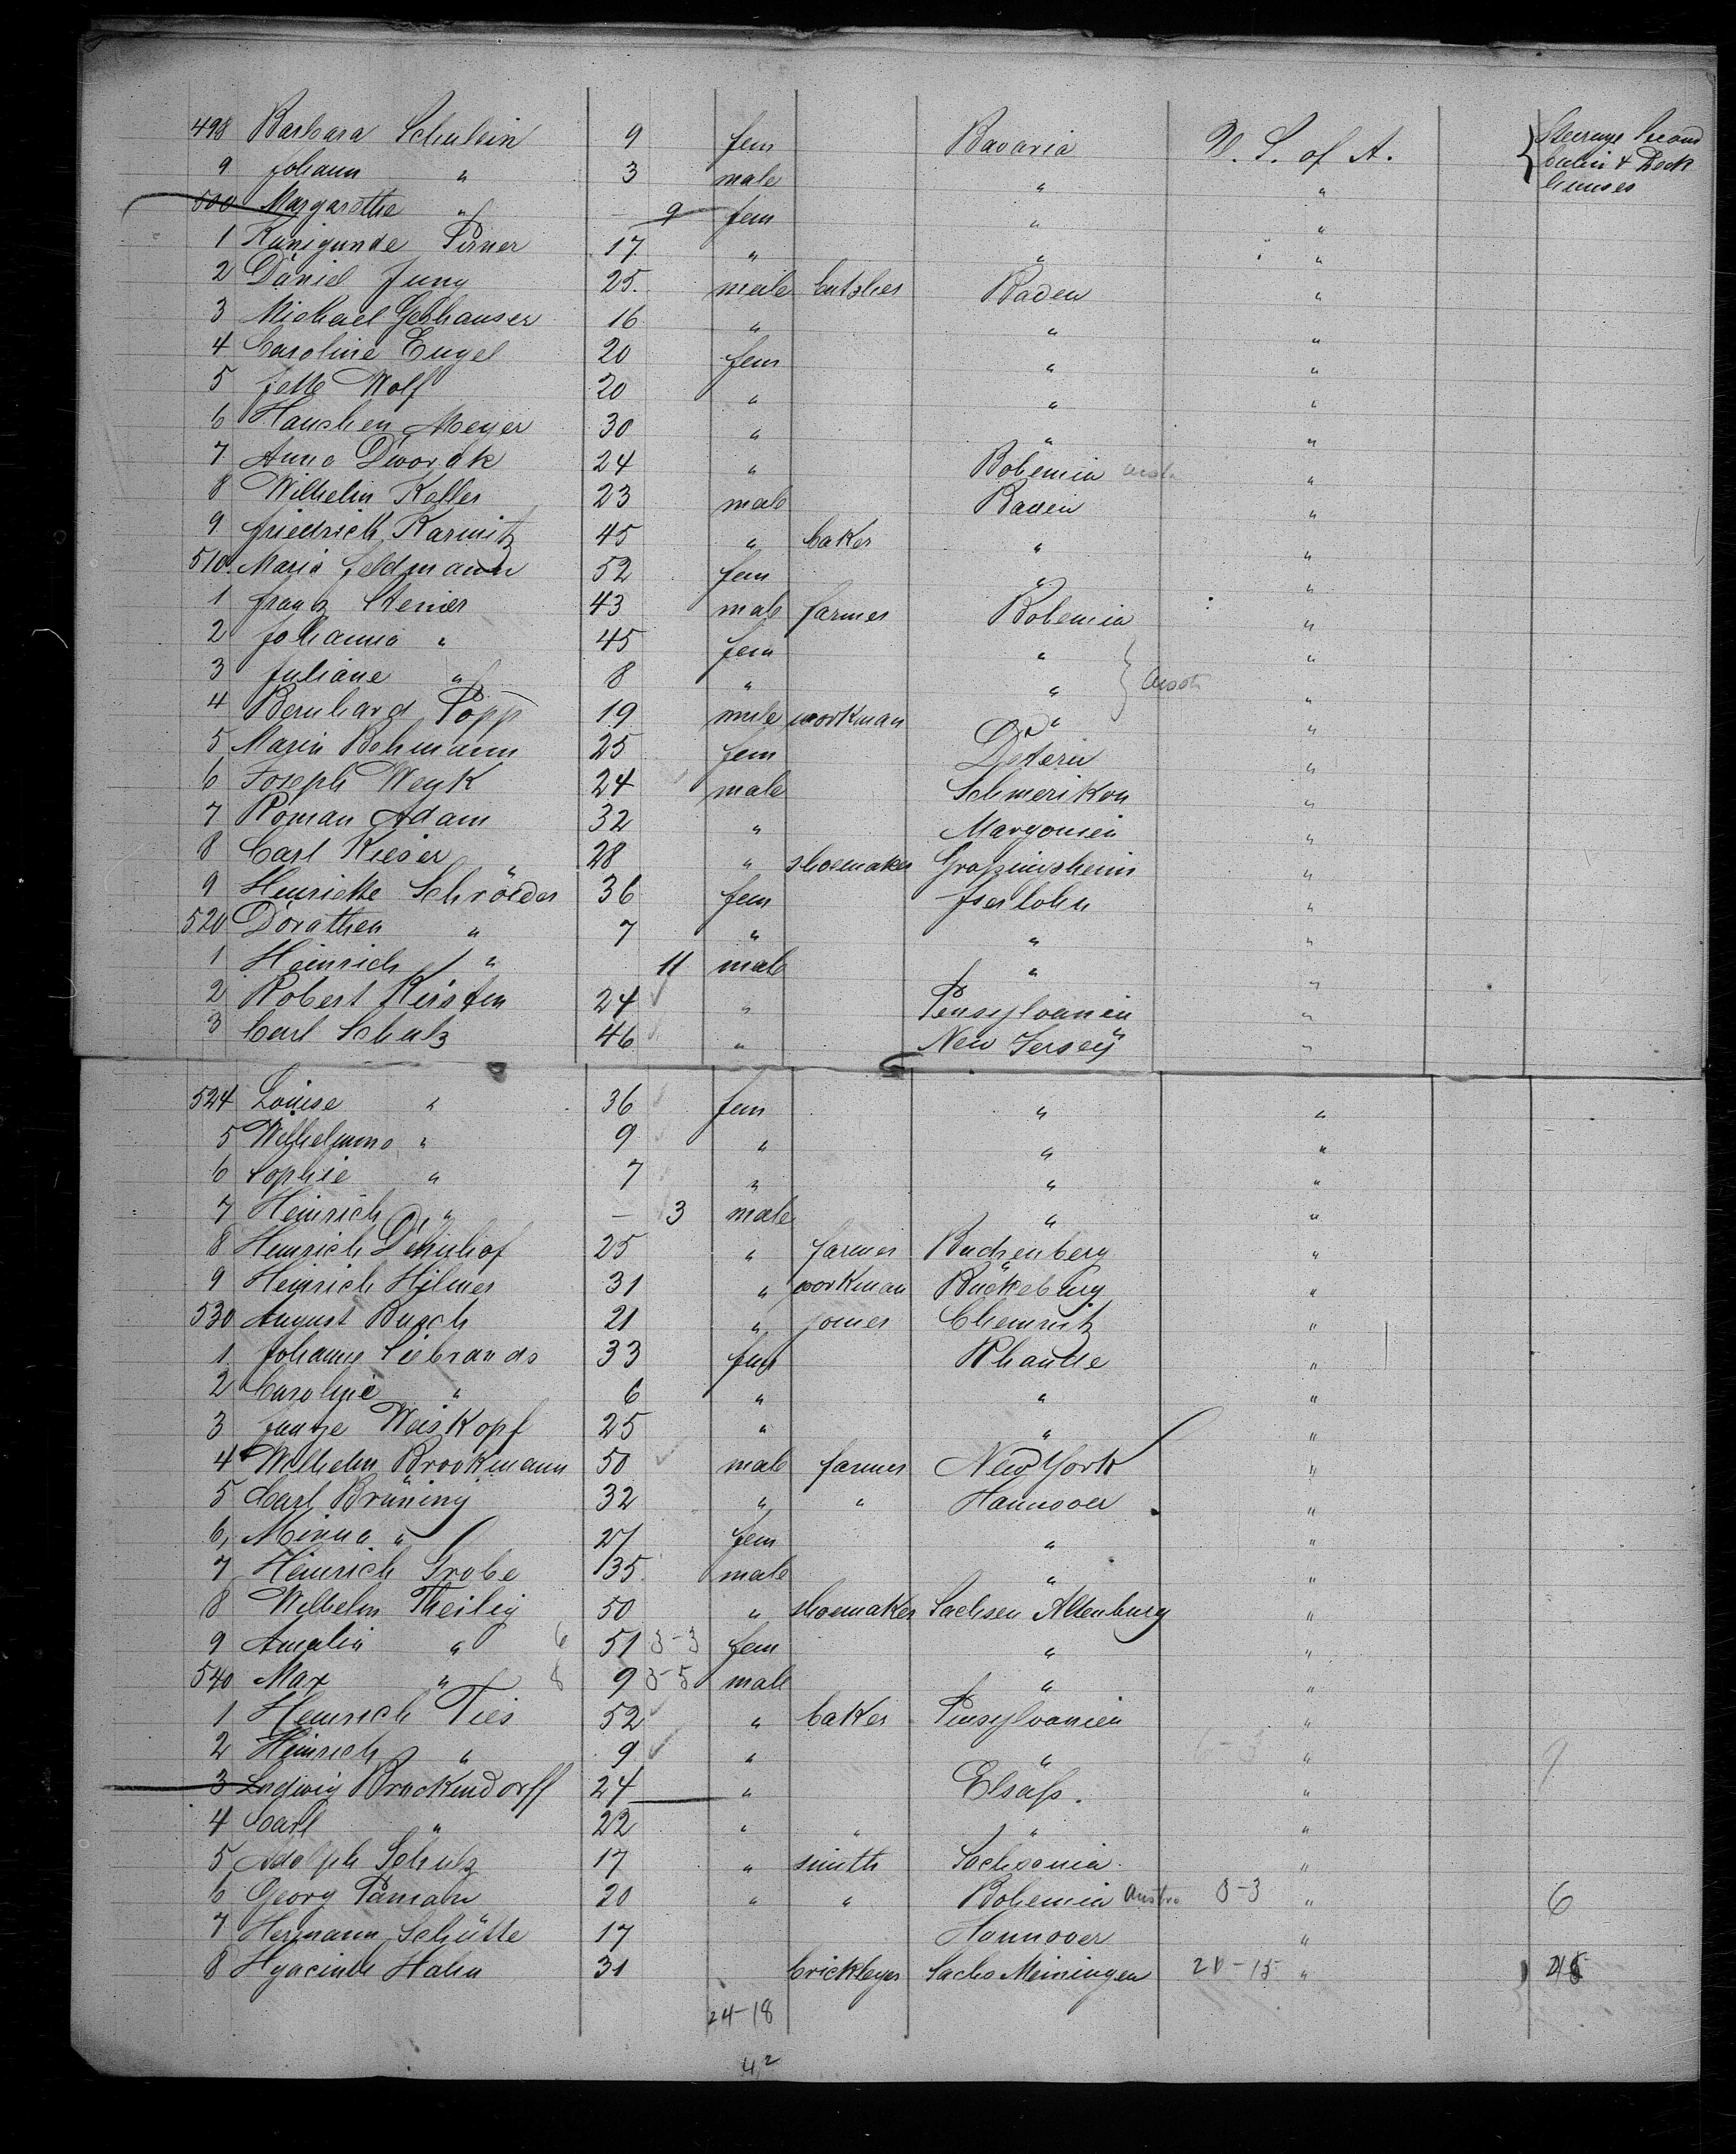 498 Barbara Schulein 9 fem Bavaria U. S. of A. Steerage Second
9 Johann " 3 male " " Cabin & Deck
houses
500 Margarethe " — 9 fem " "
1 Kunigunde Pirner 17 " " "
2 Daniel Jung 25. male butsher Baden "
3 Michael Gebhauser 16 " " "
4 Caroline Engel 20 fem " "
5 Jette Wolf 20 " " "
6 Hanchen Meyer 30 " " "
7 Anna Dworak 24 " Bohemia "
8 Wilhelm Keller 23 male Baden "
9 Friedrich Karnitz 45 " baker " "
510. Maria Feldmann 52 fem " "
1 Franz Steiner 43 male farmer Bohemia "
2 Johanna " 45 fem " "
3 Juliane " 8 " " "
4 Bernhard Popp 19 male workman " "
5 Marie Behmann 25 fem Detern "
6 Joseph Weyk 24 male Schmerikon "
7 Roman Adam 32 " Margonin "
8 Carl Kieser 28 " shoemaker "
9 Henriette Schröder 36 fem Iserlohn "
520 Dorathea " 7 " " "
1 Heinrich " 11 male " "
2 Robert Kirsten 24 " Pensylvanien "
3 Carl Schulz 46 " New Jersey "
524 Louise " 36 fem " "
5 Wilhelmine " 9 " " "
6 Sophie " 7 " " "
7 Heinrich " — 3 male " "
8 Heinrich Dehnhof 25 " farmer Buchenberg "
9 Heinrich Hilmer 31 " workman Bückeburg "
530 August Busch 21 " joiner Chemnitz "
1 Johanne Siebrands 33 fem Rhaude "
2 Caroline " 6 " " "
3 Antje Weiskopf 25 " " "
4 Wilhelm Brookmann 50 male farmer New York "
5 Carl Brüning 32 " " Hannover "
6 Minna " 27 fem " "
7 Heinrich Grobe 35 male " "
8 Wilhelm Theilig 50 " shoemaker Sachsen Altenburg "
9 Amalia " 6 51 3-3 fem " "
540 Max " 8 9 3-5 male " "
1 Heinrich Ties 52 " baker Pensylvanien "
2 Heinrich " 9 " " 6-3 "
3 Ludwig Brackendorff 24 " Elsaß. "
4 Carl " 22 " " " "
5 Adolph Schulz 17 " smith Sachsonia "
6 Georg 20 " " Bohemia Austria 3-3 " 6
7 Hermann Schütte 17 Hannover "
8 Hyacinth Hahn 31 brickleyer Sachs Meiningen 20-15 "
24-18
42